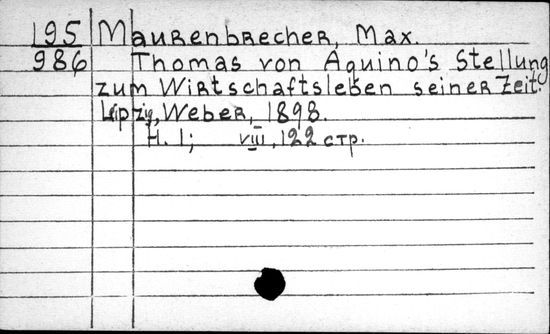 195 Maurenbrecher, Max.
986 Thomas von Aquino's Stellung
zum Wirtschaftsleben seiner Zeit.
Leipzig, Weber, 1898.
H. 1; VIII, 122 стр.